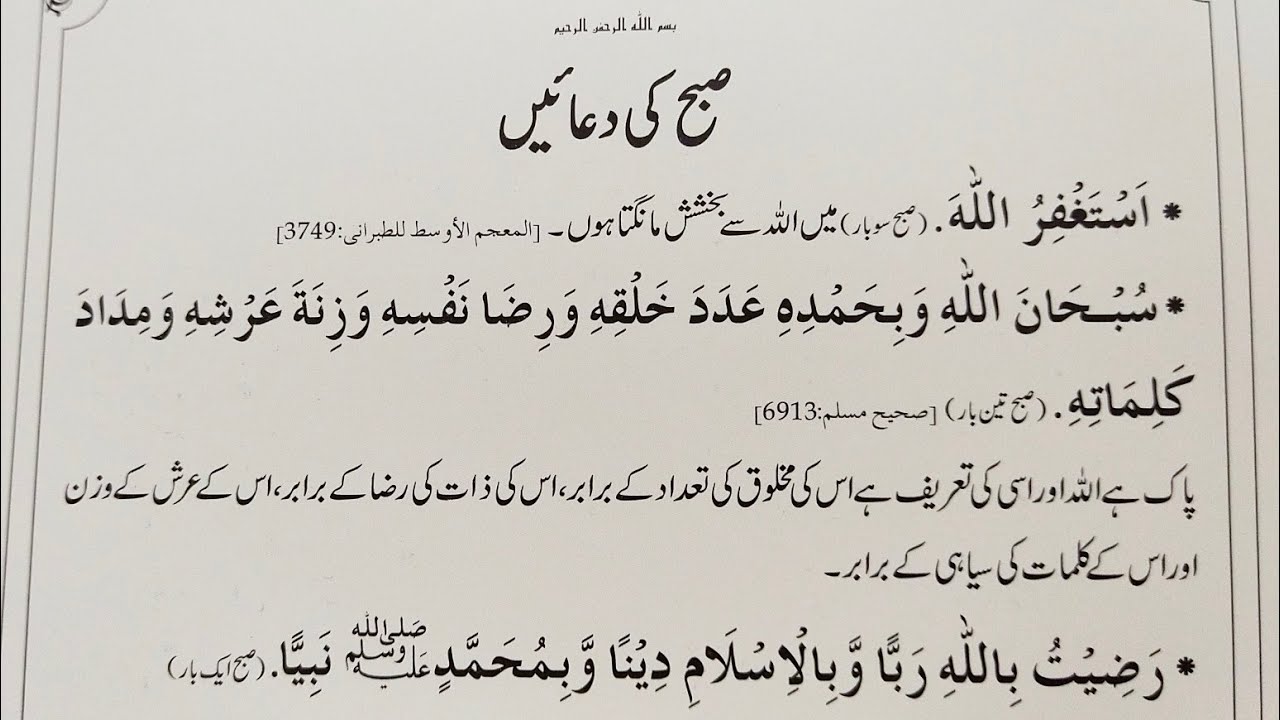 بسم الله الرحمن الرحيم
صبح کی دعائیں
* اَسْتَغْفِرُ اللّٰهَ. (صبح سو بار) میں اللہ سے بخشش مانگتا ہوں۔ [المعجم الأوسط للطبرانی:3749]
* سُبْحَانَ اللّٰهِ وَبِحَمْدِهٖ عَدَدَ خَلْقِهٖ وَرِضَا نَفْسِهٖ وَزِنَةَ عَرْشِهٖ وَمِدَادَ
كَلِمَاتِهٖ. (صبح تین بار) [صحيح مسلم:6913]
پاک ہے اللہ اور اسی کی تعریف ہے اس کی مخلوق کی تعداد کے برابر، اس کی ذات کی رضا کے برابر، اس کے عرش کے وزن
اور اس کے کلمات کی سیاہی کے برابر۔
* رَضِيْتُ بِاللّٰهِ رَبًّا وَّبِالْاِسْلَامِ دِيْنًا وَّبِمُحَمَّدٍ صَلَّى اللّٰهُ عَلَيْهِ وَسَلَّمَ نَبِيًّا. (صبح ایک بار)